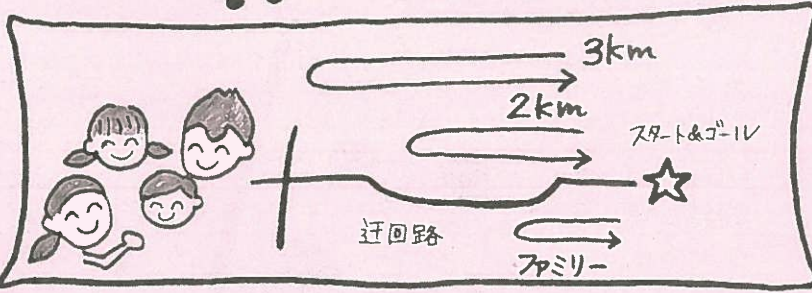 3km
2km
スタート&ゴール
迂回路
ファミリー